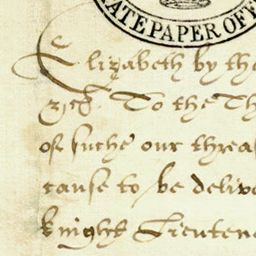 ATE PAPER OFF
Elizabeth by the
&c. To the Th
of suche our threas
cause to be delive
knight Lieutena